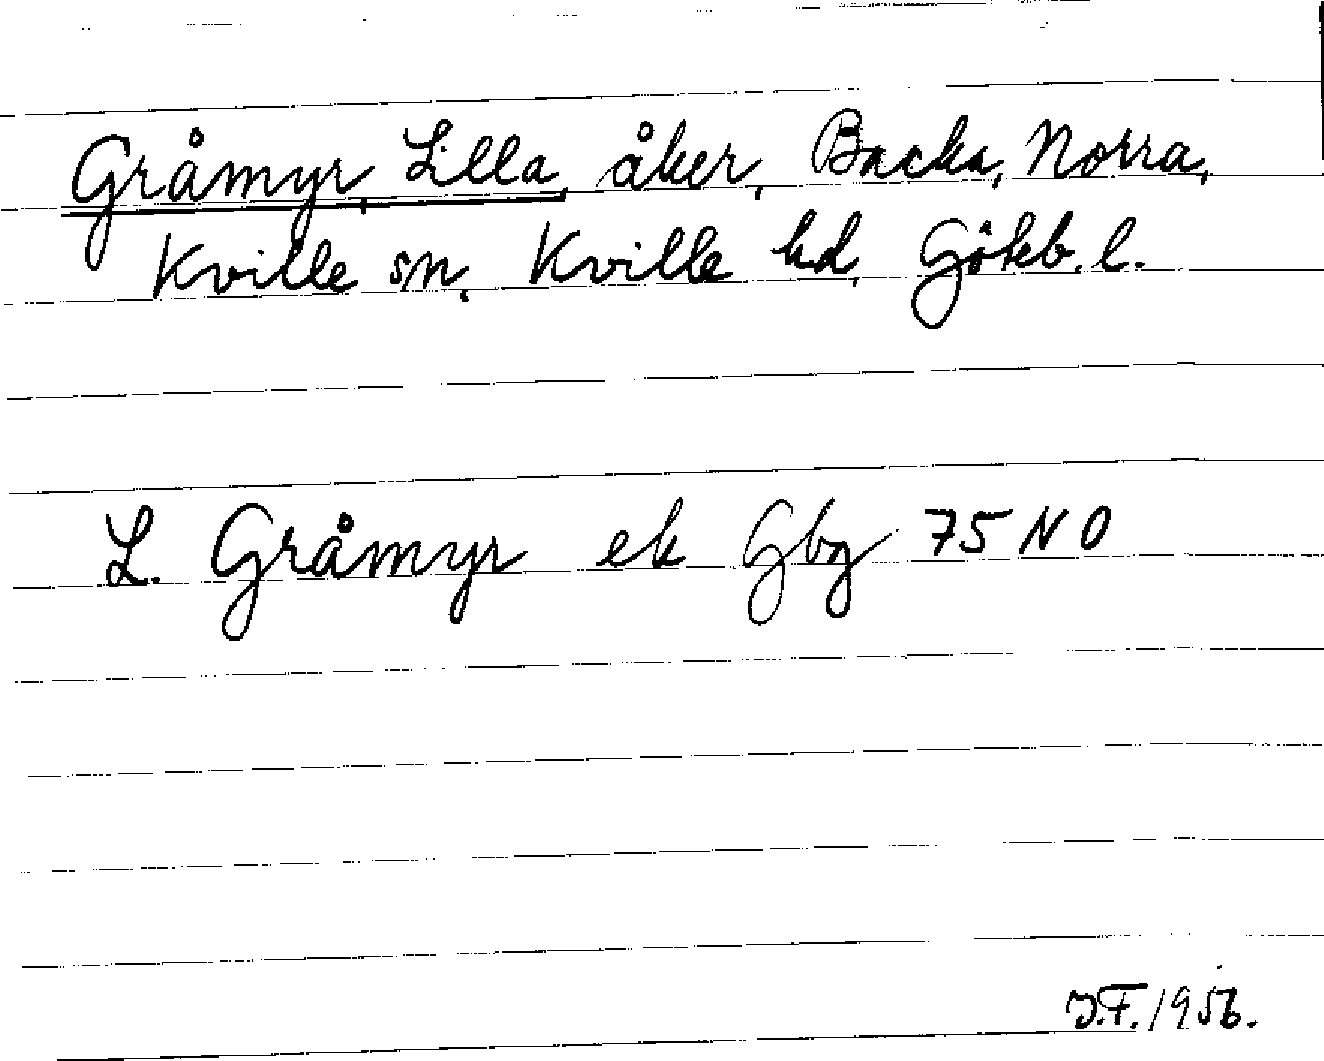 Gråmyr, Lilla, åker, Backa, Norra,
Kville sn, Kville hd, Göteb. l.
L. Gråmyr ek Gbg 75 NO
J.F. 1956.